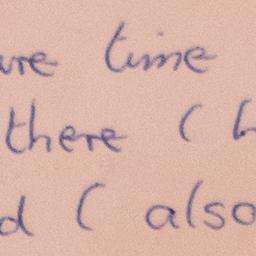 ure time
there (
d ( also